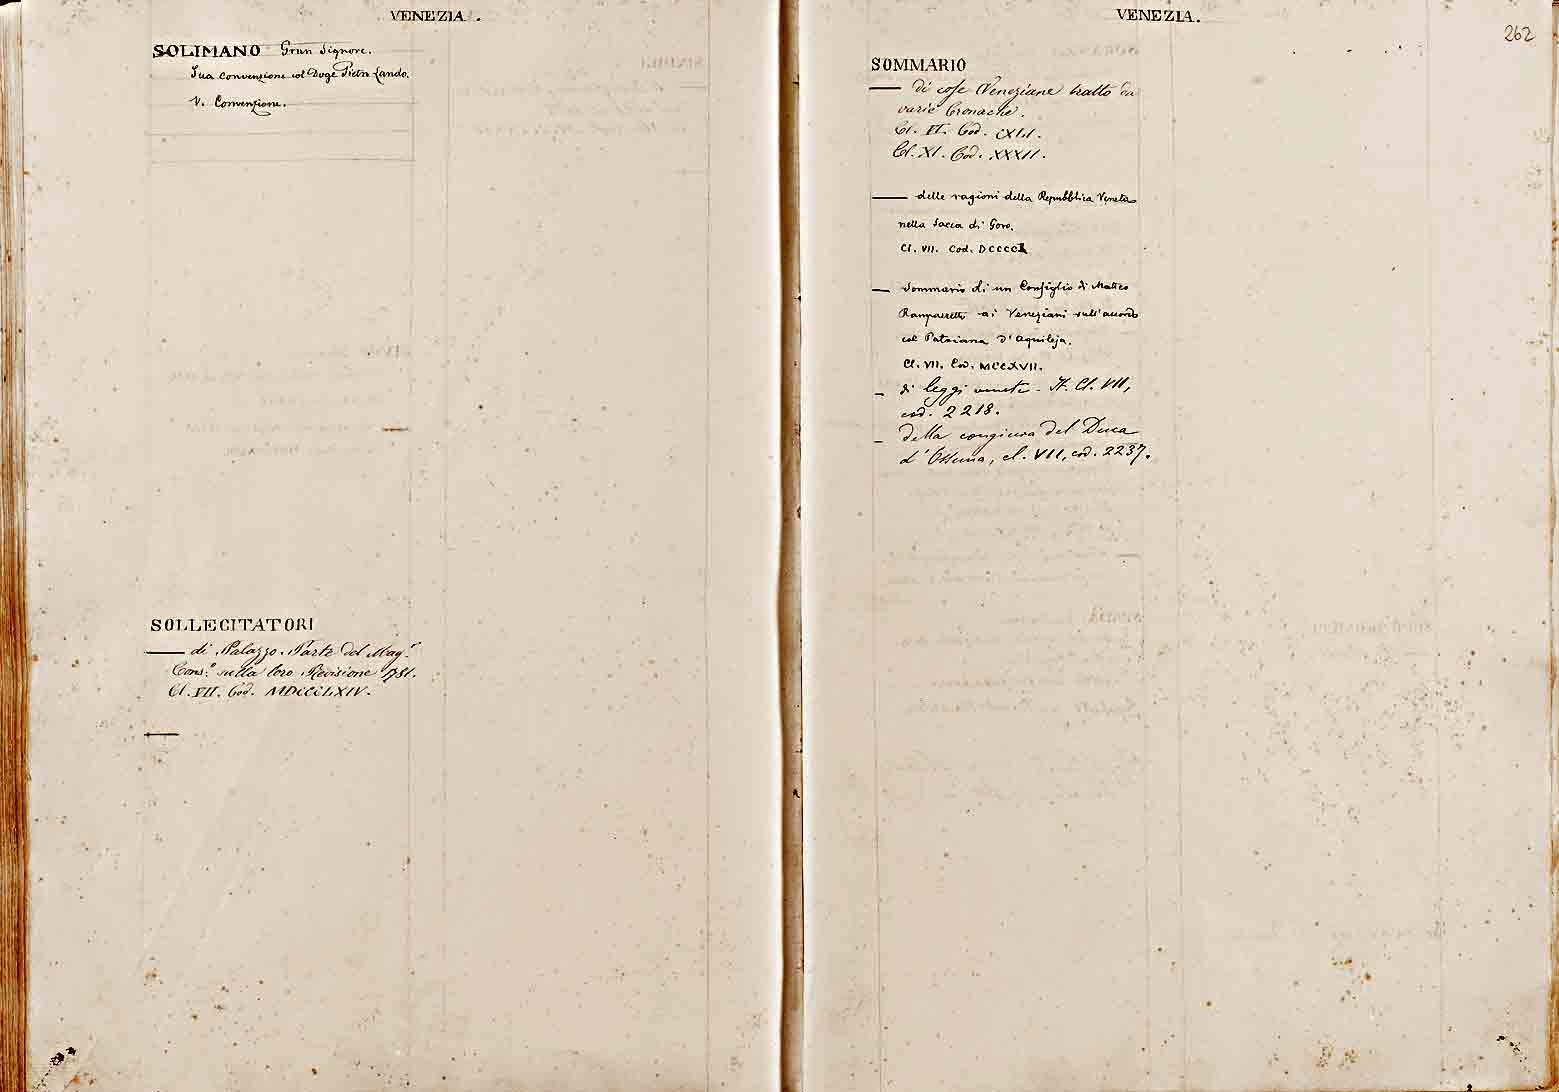 VENEZIA.
SOLIMANO Gran Signore.
Sua convenzione col Doge Pietro Lando.
V. Convenzione.
SOLLECITATORI
—— di Palazzo. Parte del Mag.r
Cons.o sulla loro Revisione 1781.
Cl. VII. Cod. MDCCCLXIV.
——
VENEZIA.
262
SOMMARIO
—— di cose Veneziane tratto da
varie Cronache.
Cl. VI. Cod. CXLI.
Cl. XI. Cod. XXXII.
—— delle ragioni della Repubblica Veneta
nella Sacca di Goro.
Cl. VII. Cod. DCCCC
— Sommario di un Consiglio di Matteo
ai Veneziani sull'accordo
col Patriarca d'Aquileja.
Cl. VII. Cod. MCCXVII.
— di leggi venete - It. Cl. VII,
cod. 2218.
— della congiura del Duca
d'Ossuna, cl. VII, cod. 2237.